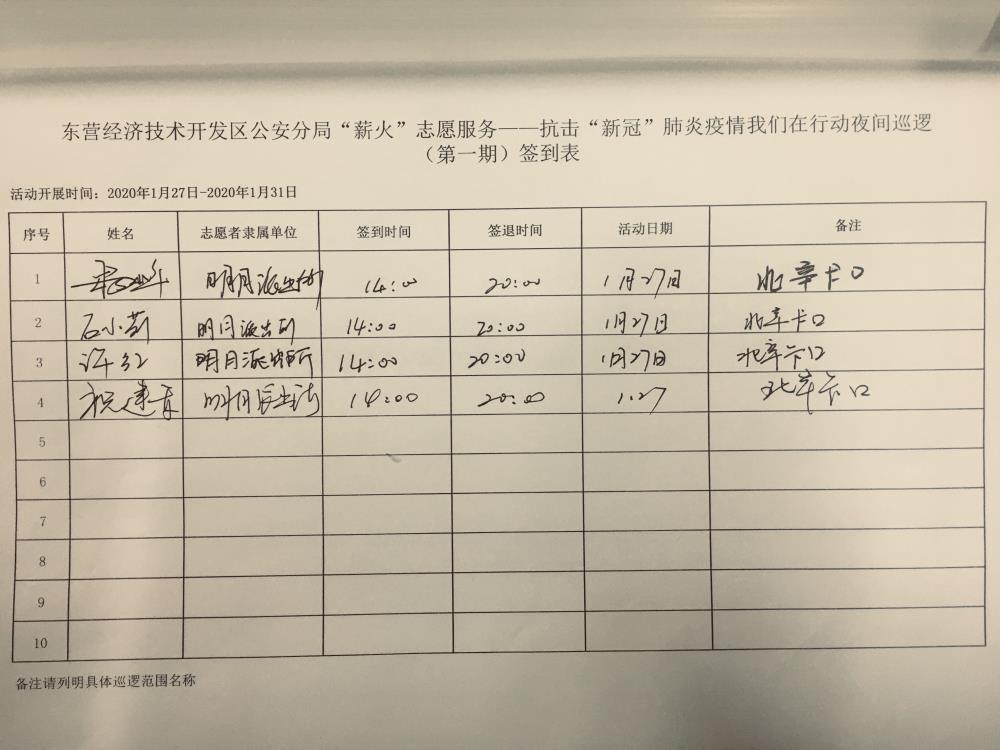 东营经济技术开发区公安分局“薪火”志愿服务——抗击“新冠”肺炎疫情我们在行动夜间巡逻
（第一期）签到表
活动开展时间：2020年1月27日-2020年1月31日
序号 姓名 志愿者隶属单位 签到时间 签退时间 活动日期 备注
1 明月派出所 14:00 20:00 1月27日 北辛卡口
2 石小莉 明月派出所 14:00 20:00 1月27日 北辛卡口
3 许红 明月派出所 14:00 20:00 1月27日 北辛卡口
4 祝建青 明月派出所 14:00 20:00 1.27 北辛卡口
5
6
7
8
9
10
备注请列明具体巡逻范围名称